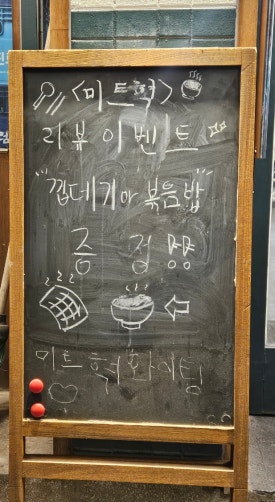 <미트헉>
리뷰이벤트
"껍데기or볶음밥"
증 정
미트 헉 화이팅